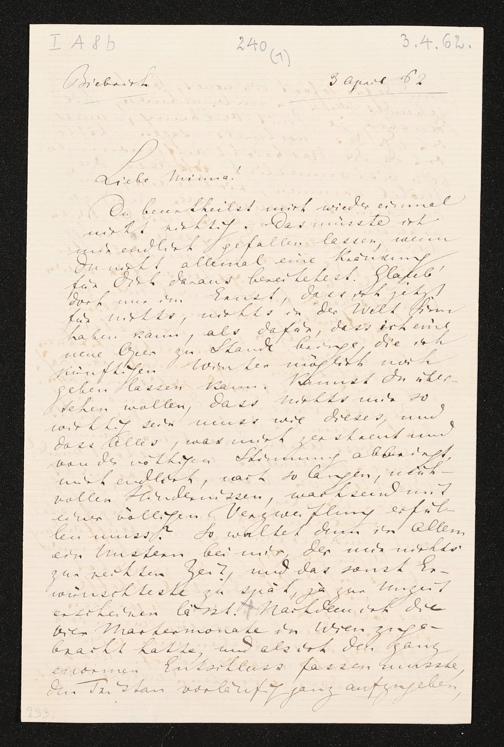 I A 8 b
240
(1)
3.4.62.
Biebrich
3 April 62
Liebe Minna!
Du beurtheilst mich wieder einmal
nicht richtig. Das müsste ich
mir endlich gefallen lassen, wenn
Du nicht allemal eine Kränkung
für Dich daraus bereitetest. Glaub'
doch nur im Ernst, dass ich jetzt
für nichts, nichts in der Welt Sinn
haben kann, als dafür, dass ich eine
neue Oper zu Stande bringe, die ich
künftigen Winter möglich noch
geben lassen kann. Kannst Du über-
sehen wollen, dass nichts mir so
wichtig sein muss wie dieses, und
dass Alles, was mich zerstreut und
von der nöthigen Stimmung abbringt,
mich endlich, nach so langen, müh-
vollen Hindernissen, wachsend mit
einer völligen Verzweiflung erfül-
len muss? So waltet denn in Allem
ein Unstern bei mir, der mir nichts
zur rechten Zeit, und das sonst Er-
wünschteste zu spät, ja zur Unzeit
erscheinen lässt. Nachdem ich die
vier Martermonate in Wien zuge-
bracht hatte, und als ich den ganz
enormen Entschluss fassen musste,
den Tristan vorläufig ganz aufzugeben,
233